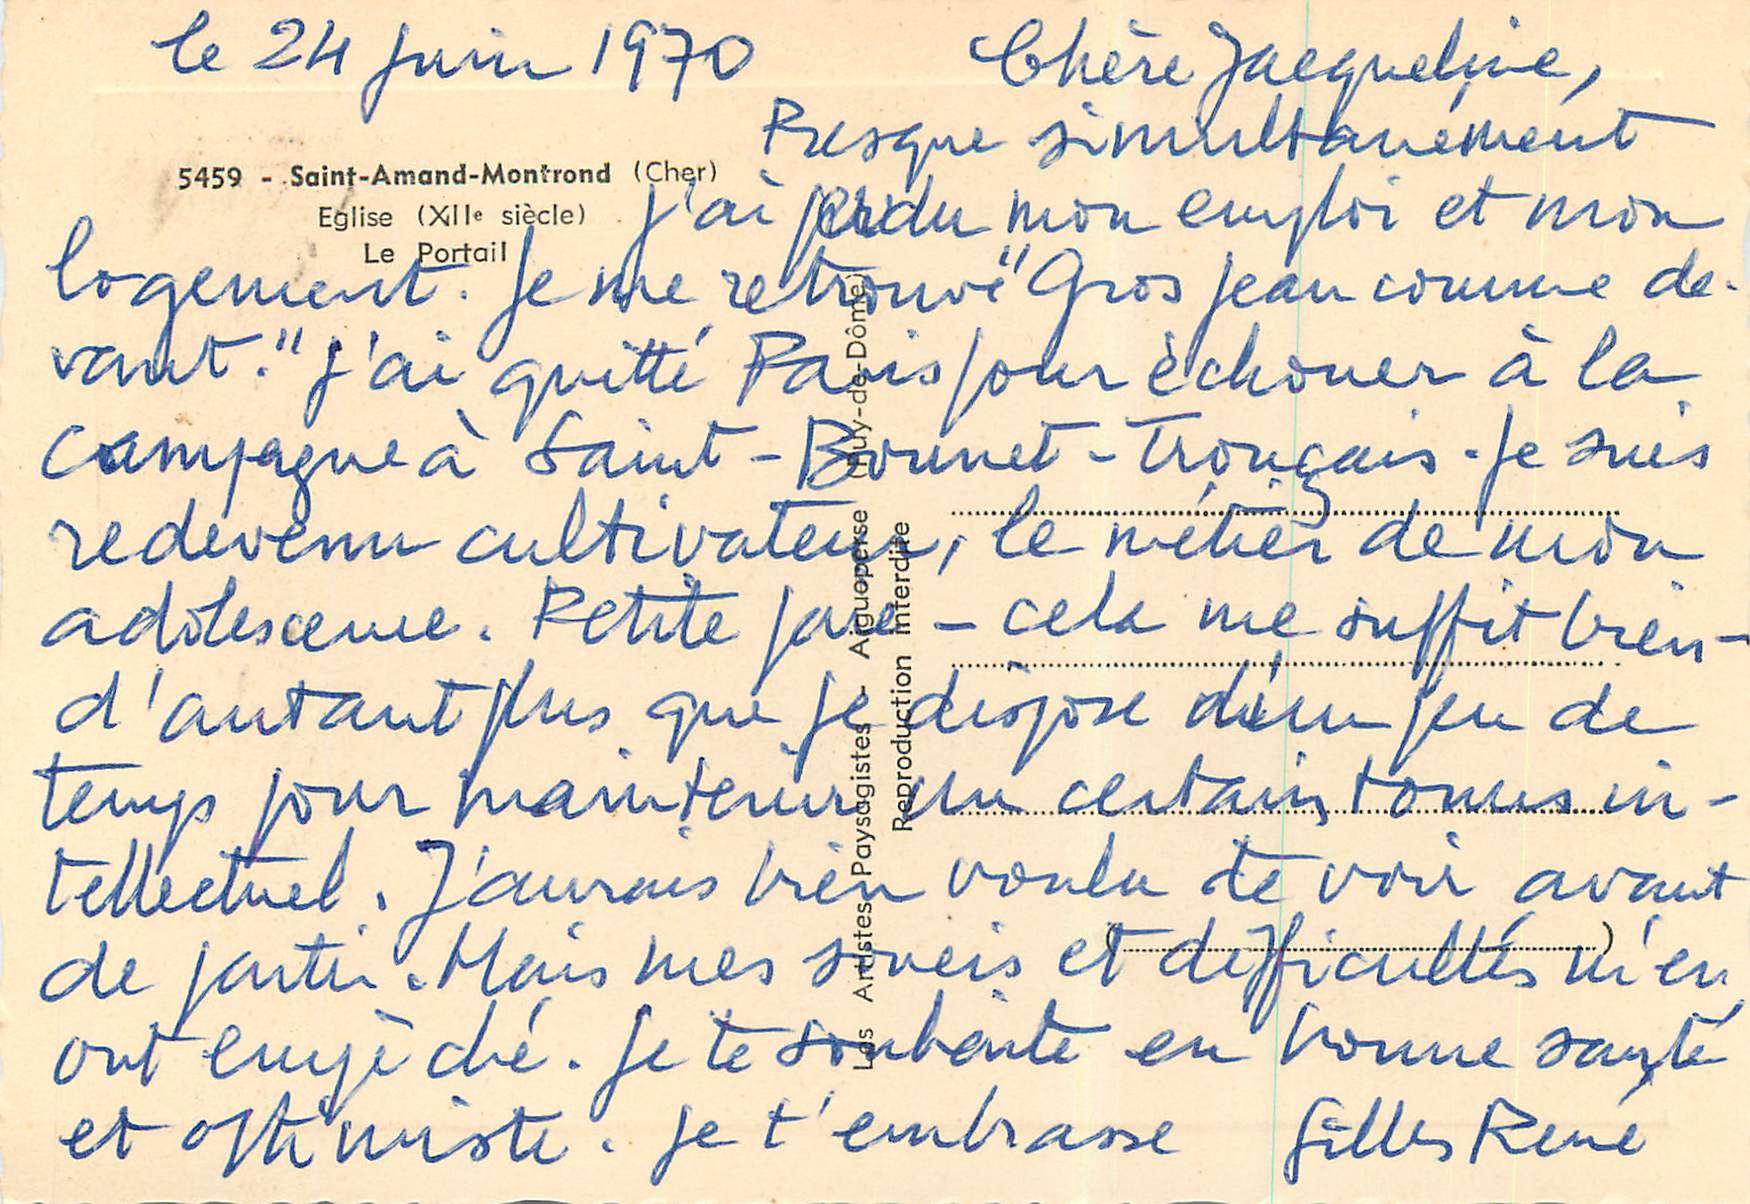 le 24 juin 1970
Chère Jacqueline,
Presque simultanément
5459 - Saint-Amand-Montrond (Cher)
Eglise (XIIe siècle)
Le Portail
j'ai perdu mon emploi et mon
logement. Je me retrouve "Gros Jean comme de-
vant." J'ai quitté Paris pour échouer à la
campagne à Saint-Bonnet-Tronçais. Je suis
redevenu cultivateur, le métier de mon
adolescence. Petite paie - cela me suffit bien -
d'autant plus que je dispose d'un peu de
temps pour maintenir un certain tonus in-
tellectuel. J'aurais bien voulu te voir avant
de partir. Mais mes soucis et difficultés m'en
ont empêché. Je te souhaite en bonne santé
et optimiste. Je t'embrasse Gilles René
Les Artistes Paysagistes - Aigueperse (Puy-de-Dôme)
Reproduction interdite